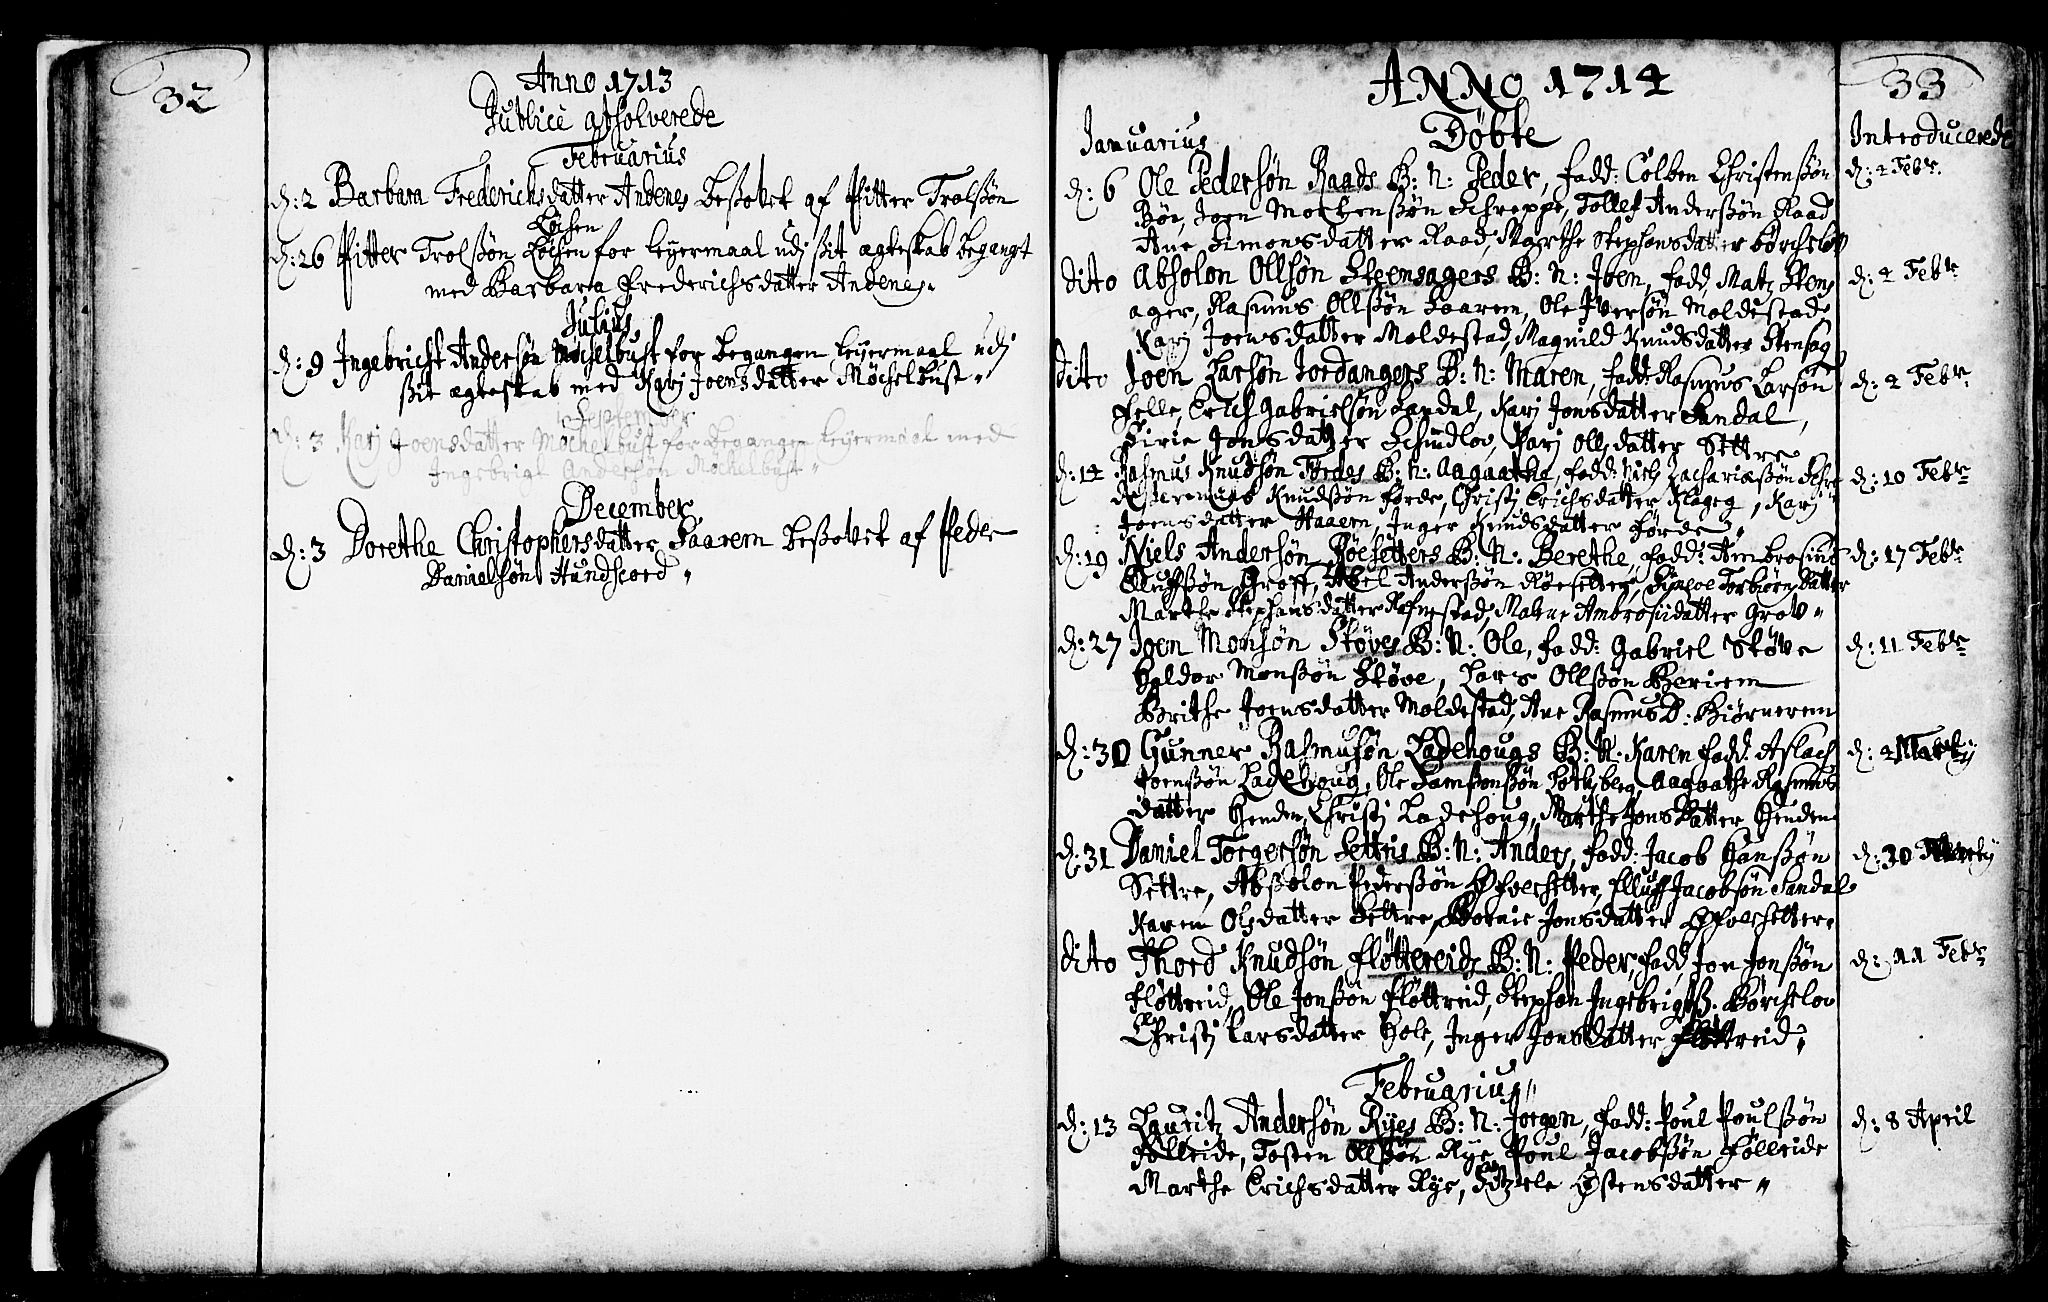 32
Anno 1713
Publicè absolverede
Februarius
d: 2 Barbara Frederichsdatter Andenes besovet af Pitter Trolssön
Löchen
d: 26 Pitter Trolssön Löchen for Leyermaal udj sit ægteskab begangt
med Barbara Frederichsdatter Andenes
Julius
d: 9 Ingebricht Andersön Möchelbust for begangen Leyermaal udj
sit ægteskab med Karj Joensdatter Möchelbust
September
d: 3 Karj Joensdatter Möchelbust for begangen Leyermaal med
Ingebrigt Andersön Möchelbust
December
d: 3 Dorethe Christophersdatter Faarem besovet af Peder
Danielsön Hundseord
ANNO 1714
33
Januarius Döbte Introducerede
d: 6 Ole Pedersön Raads B: N: Peder, fadd: Colben Christenssön d: 2 Febr.
Böe, Joen Mochenssön Schreppe, Tollef Anderssön Raad
Ane Simonsdatter Raad, Marthe Stephensdatter
dito Absolon Ollsön Steensagers B: N: Joen, fadd: Matz Stens d: 2 Febr
ager, Rasmus Ollssön Aarem, Ole Iversön Moldestad
Karj Joensdatter Moldestad, Magnild Knudsdatter Stensag
dito Joen Larsön Jordangers B: N: Maren, fadd: Rasmus Larsön d: 2 Febr
Felle, Erich Gabrielsön Sandal, Karj Jonsdatter Sandal,
Sirie Jonsdatter, Karj Ollsdatter Settre
d: 14 Rasmus Knudsön Fördes B: N: Aagaathe, fadd: Niels Zachariassön d: 10 Febr
Jeremias Knudssön Förde, Christj Erichsdatter, Karj
Joensdatter Haaem, Inger Knudsdatter Förde
d: 19 Niels Andersön Röesetters B: N: Berethe, fadd: Ambrosius d: 17 Febr
Elufssön Groff, Abel Anderssön Röesetter, Torbiörnsdatter
Marthe Stephansdatter Rafnestad, Malene Ambrosiidatter Grov
d: 27 Joen Monsön Stöves B: N: Ole, fadd: Gabriel Stöve d: 11 Febr
Haldor Monssön Stöve, Lars Ollssön Beriem
Brithe Joensdatter Moldestad, Ane Rasmus D: Biörnerem
d: 30 Gunner Rasmusön Ladehougs B: N: Karen fadd: Aslach d: 2 Martj
Joenssön Ladehoug, Ole Samsonssön Lothsberg, Aagaathe Rasmus
datter Henden, Christj Ladehoug, Marthe Jons Datter Henden
d: 31 Daniel Torgersön Settris B: N: Anders, fadd: Jacob Hanssön d: 30 Martj
Settre, Absolon Pederssön, Elluf Jacobsön Sandal
Karen Olsdatter Settre, Jonsdatter
dito Thord Knudsön Flöttereids B: N: Peder, fadd: Jon Jonssön d: 11 Febr
Flöttreid, Ole Jonssön Flöttreid, Stephen Ingebrigts: Börchelov
Christj Larsdatter Hole, Inger Jonsdatter Flöttreid
Februarius
d: 13 Lauritz Andersön Ryes B: N: Jörgen, fadd: Poul Poulssön d: 8 April
Fölleide, Tosten Ollssön Rye, Poul Jacobssön Fölleide
Marthe Erichsdatter Rye, Östensdatter